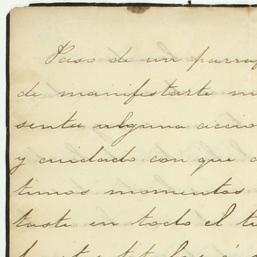 Paso de un parraf
de manifestarte m
senta alguna accio
y cuidado con que
timos momentos
taste en todo el t